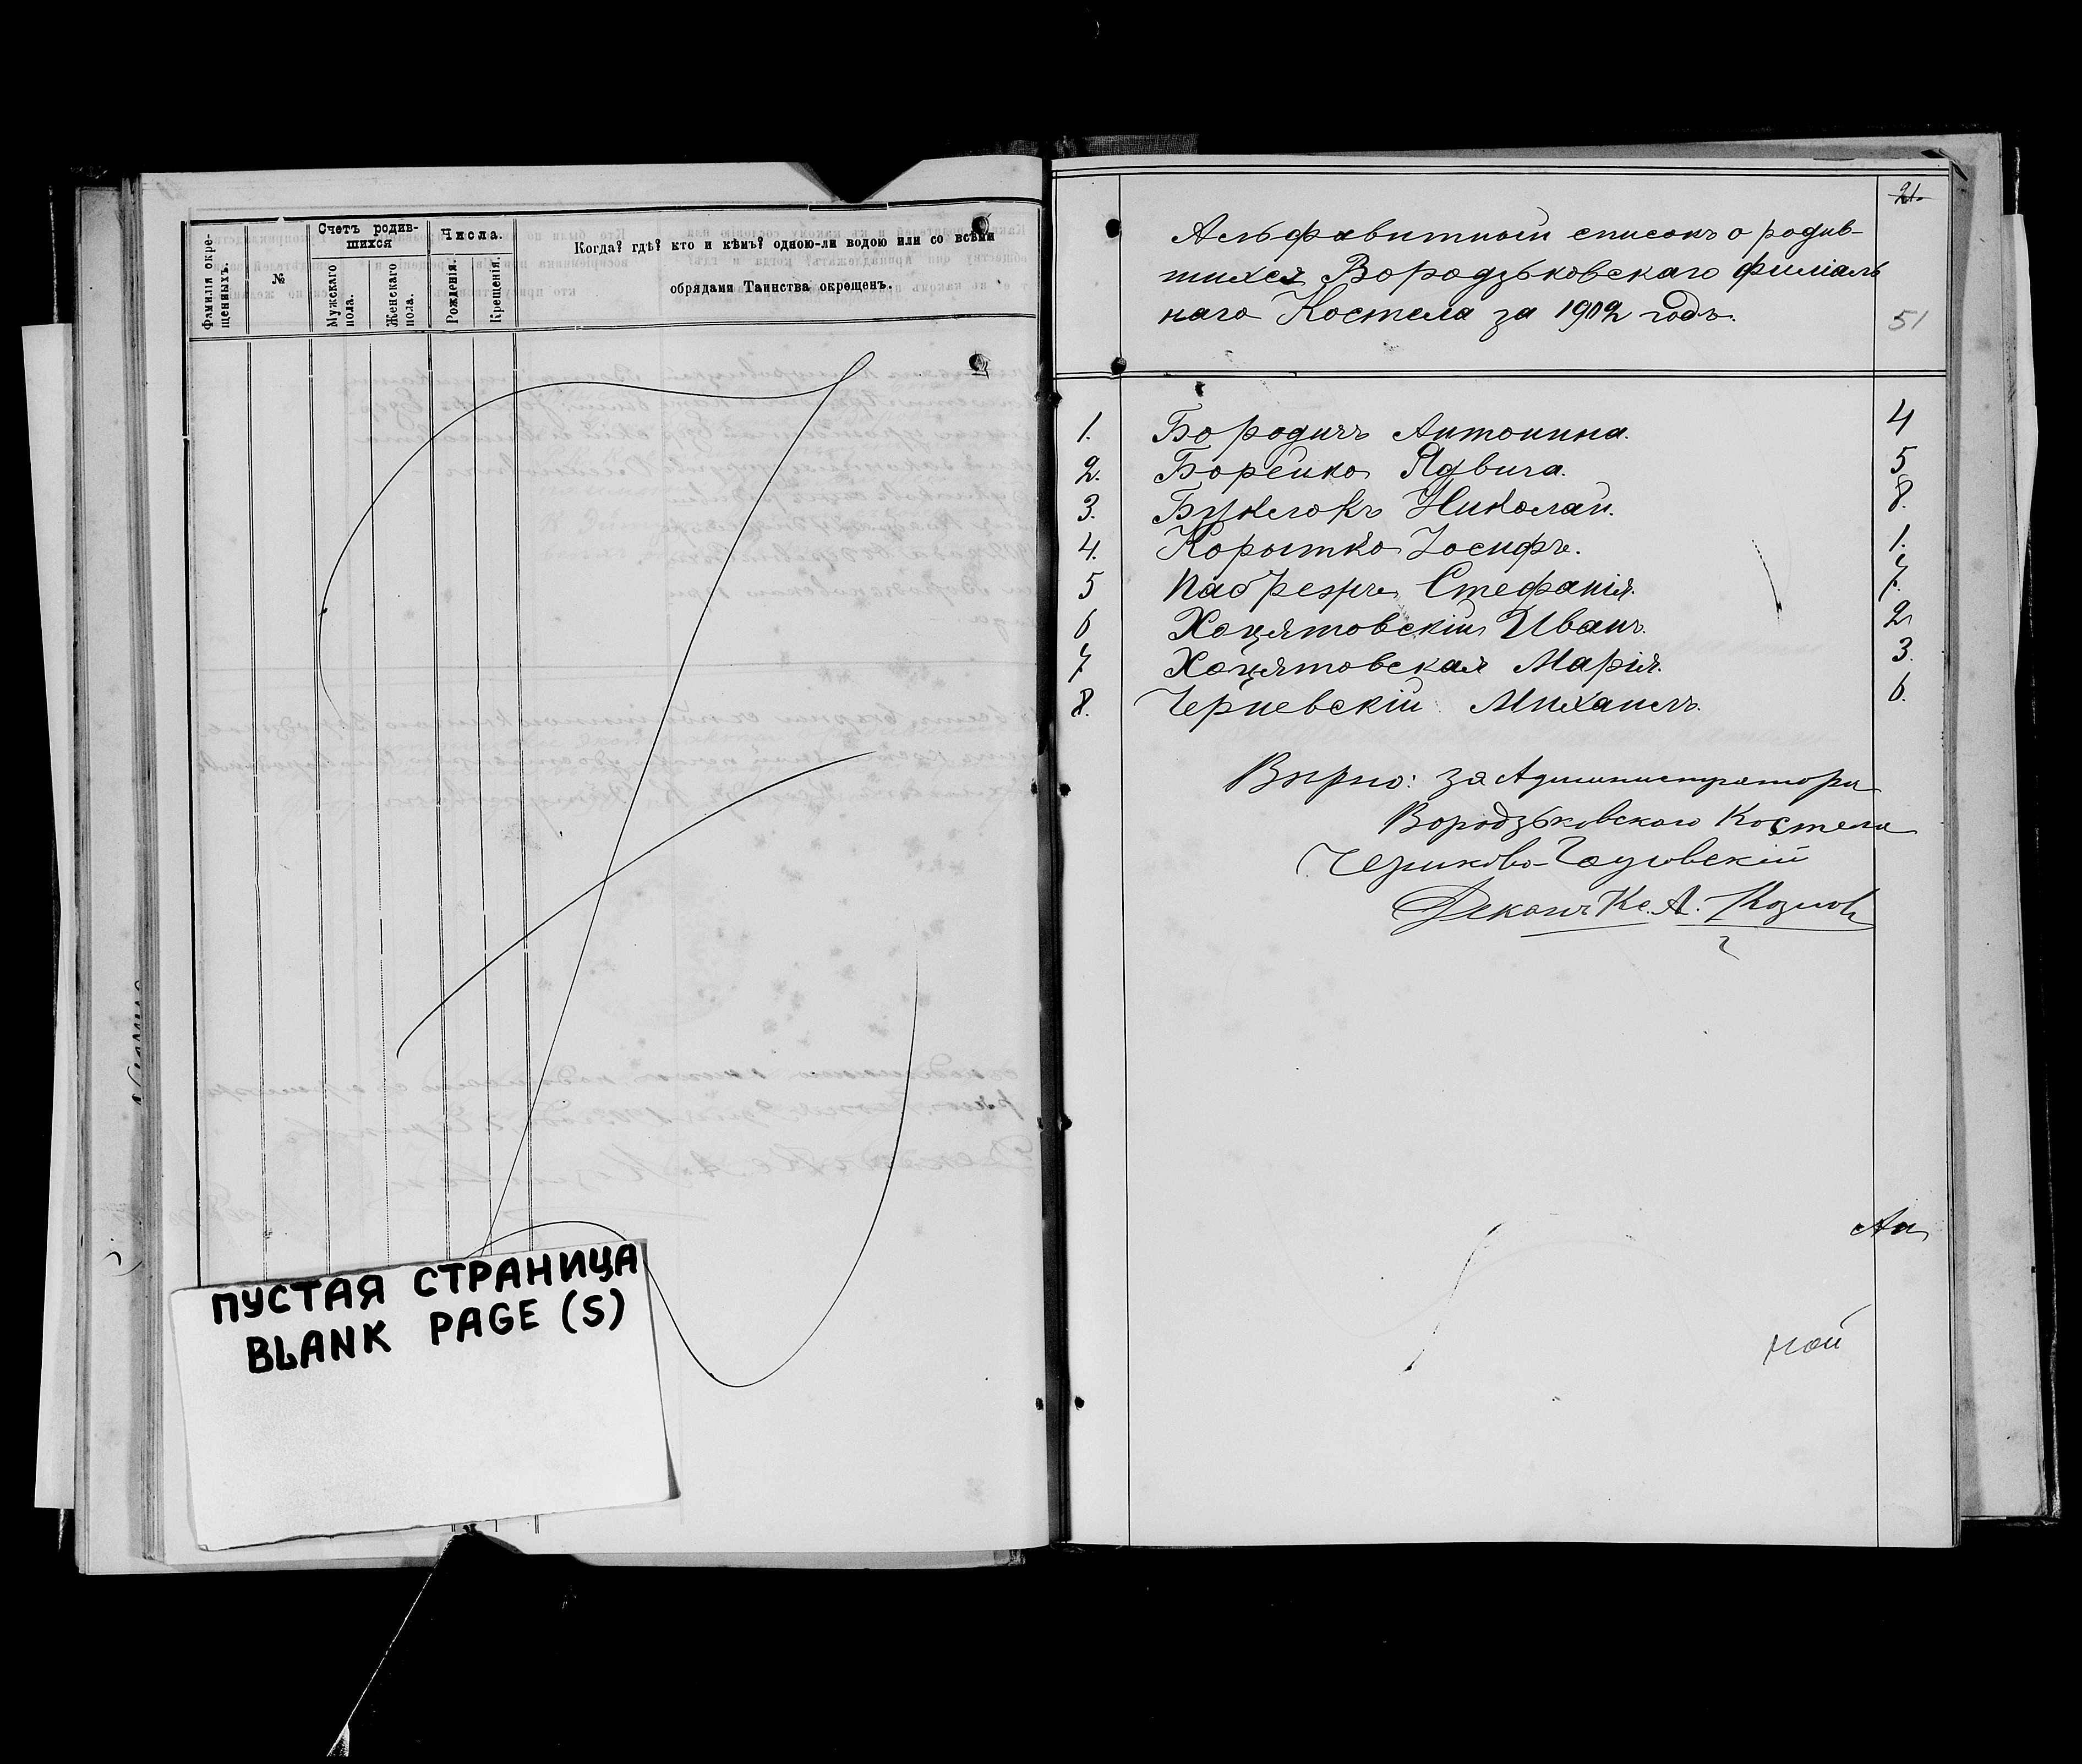 Фамилія окре-
щенныхъ.
№
Счетъ родив-
шихся
Мужскаго
пола.
Женскаго
пола.
Числа.
Рожденія.
Крещенія.
Когда? гдѣ? кто и кѣмъ? одною-ли водою или со всѣми
обрядами Таинства окрещенъ.
ПУСТАЯ СТРАНИЦА
BLANK PAGE (S)
21.
Альфавитный списокъ о родив-
шихся Вородзьковскаго филіаль
наго Костела за 1902 годъ.
51
1. Бородичъ Антонина. 4
2. Борейко Ядвига. 5
3. Николай. 8.
4. Корытко Іосифъ. 1.
5 Стефанія. 7.
6 Хоцятовскій Иванъ. 2
7 Хоцятовская Марія. 3.
8. Черневскій Михаилъ. 6.
Вѣрно: за Администратора
Вородзьковскаго Костела
Чериково-Чаусовскій
Деканъ Кс. А.
Ан
ной